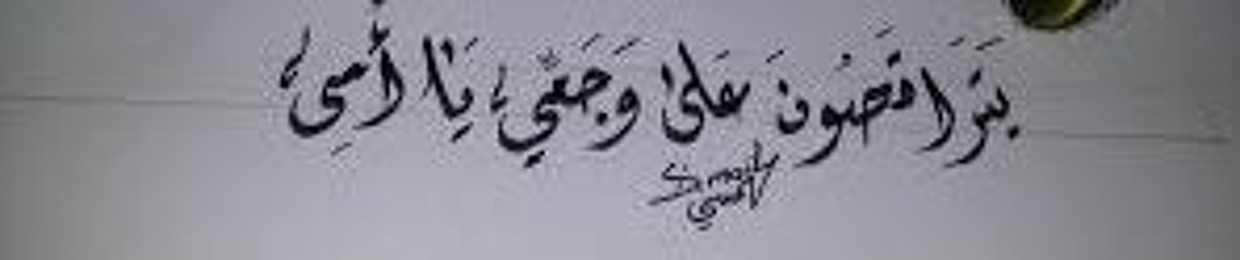 يَتَرَاقَصُونَ عَلَىٰ وَجَعَِي يَا أَسِى